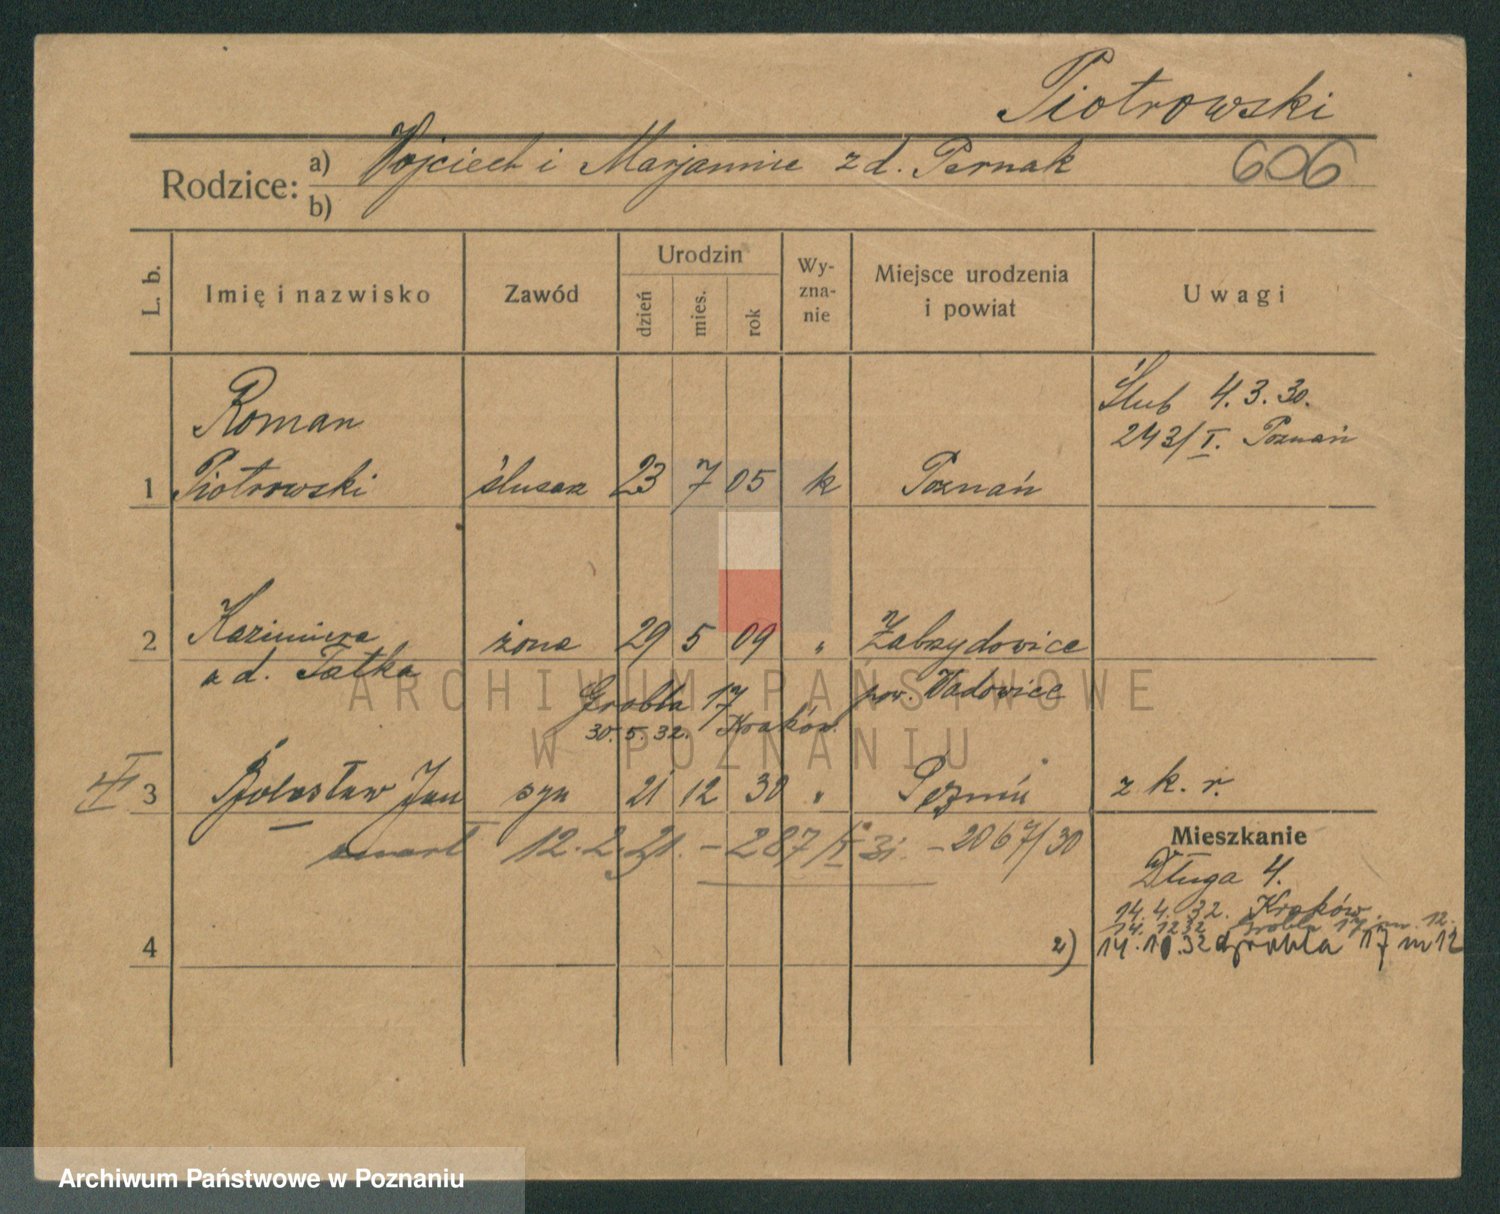 Piotrowski
Rodzice: a) Wojciech i Marjannie z d. Pernak 606
b)
L. b. Imię i nazwisko Zawód Urodzin dzień mies. rok Wy-zna-nie Miejsce urodzenia i powiat Uwagi
Ślub 4.3.30.
243/I. Poznań
Roman
1 Piotrowski ślusarz 23 7 05 k Poznań
2 Kazimiera żona 29 5 09 " Zabrzydowice
z d. Tatka pow. Wadowice
Grobla 17
30.5.32. Kraków
II 3 Bolesław Jan syn 21 12 30 " Poznań z k. r.
zmarł 12.2.31. – 287/II 31. – 2067/30
Mieszkanie
Długa 4.
14.4.32. Kraków
14.1232 Grobla 17 m. 12.
4 2) 14.10.32 Grobla 17 m 12
ARCHIWUM PAŃSTWOWE
W POZNANIU
Archiwum Państwowe w Poznaniu